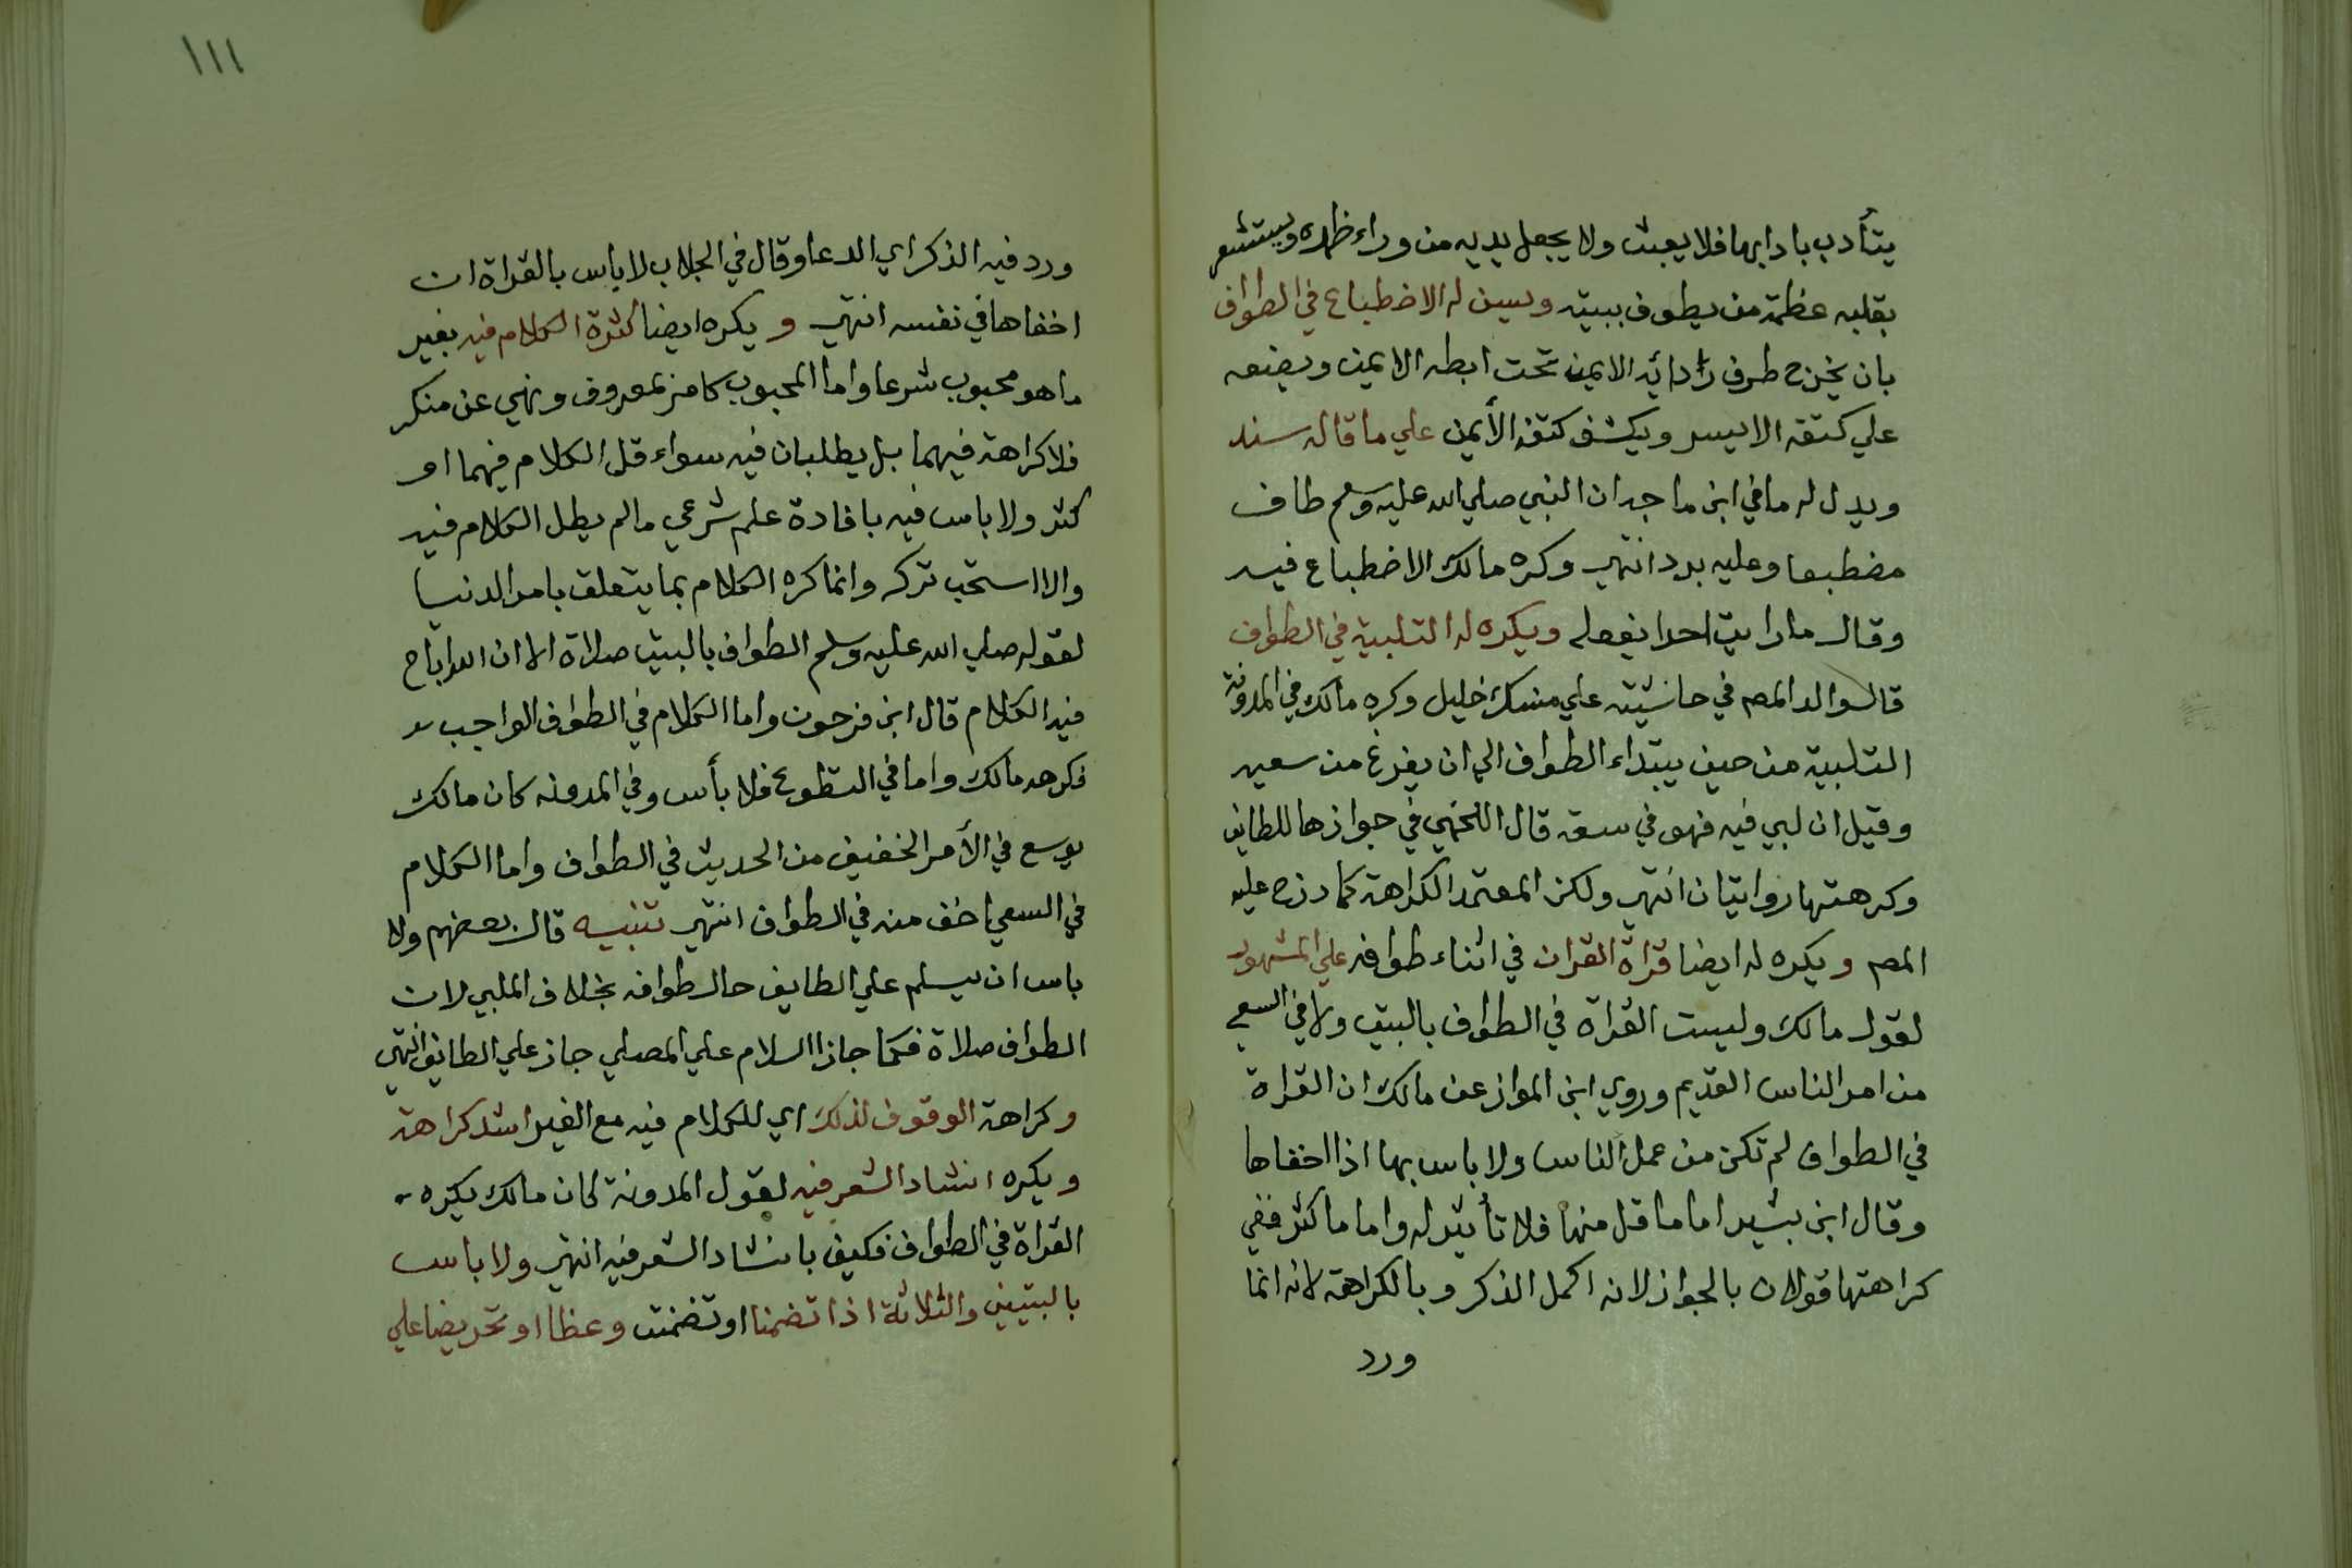 يتأدب بادابها فلا يعبث ولا يجعل يديه من وراء ظهره ويستشعر
بقلبه عظمة من يطوف ببيته ويسن له الاضطباع في الطواف
بان يخرج طرف ردائه الايمن تحت ابطه الايمن ويضعه
علي كتفه الايسر ويكشف كتفه الأيمن علي ما قاله سند
ويدل له ما في ابن ماجه ان النبي صلي الله عليه وسلم طاف
مضطبعا وعليه برد انتهي وكره مالك الاضطباع فيه
وقال ما رايت احدا يفعله ويكره له التلبية في الطواف
قال والد المصر في حاشيته علي منسك خليل وكره مالك في المدونة
التلبية من حين يبتداء الطواف الي ان يفرغ من سعيه
وقيل ان لبي فيه فهو في سعة قال اللخمي في جوازها للطايف
وكرهتها روايتان انتهي ولكن المعتمد الكراهة كما درج عليه
المص ويكره له ايضا قراة القران في اثناء طوافه علي المشهور
لقول مالك وليست القراة في الطواف بالبيت ولا في السعي
من امر الناس القديم وروي ابن المواز عن مالك ان القراة
في الطواف لم تكن من عمل الناس ولا باس بها اذا اخفاها
وقال ابن بشير اما ما قل منها فلا تأثير له واما ما كثر ففي
كراهتها قولان بالجواز لانه اكمل الذكر وبالكراهة لانه انما
ورد
١١١
ورد فيه الذكر اي الدعا وقال في الجلاب لا باس بالقراة ان
اخفاها في نفسه انتهي ويكره ايضا كثرة الكلام فيه بغير
ما هو محبوب شرعا واما المحبوب كامر بمعروف ونهي عن منكر
فلا كراهة فيهما بل يطلبان فيه سواء قل الكلام فيهما او
كثر ولا باس فيه بافادة علم شرعي ما لم يطل الكلام فيه
والا استحب تركه وانما كره الكلام بما يتعلق بامر الدنيا
لقوله صلي الله عليه وسلم الطواف بالبيت صلاة الا ان الله اباح
فيه الكلام قال ابن فرحون واما الكلام في الطواف الواجب
فكرهه مالك واما في التطوع فلا بأس وفي المدونه كان مالك
يوسع في الأمر الخفيف من الحديث في الطواف واما الكلام
في السعي اخف منه في الطواف انتهي تنبيه قال بعضهم ولا
باس ان يسلم علي الطايف حال طوافه بخلاف الملبي لان
الطواف صلاة فكما جاز السلام علي المصلي جاز علي الطايف انتهي
وكراهة الوقوف لذلك اي للكلام فيه مع الغير اشد كراهة
ويكره انشاد الشعر فيه لقول المدونة كان مالك يكره
القراة في الطواف فكيف بانشاد الشعر فيه انتهي ولا باس
بالبيتين والثلاثة اذا تضمنا او تضمنت وعظا او تحريضا علي